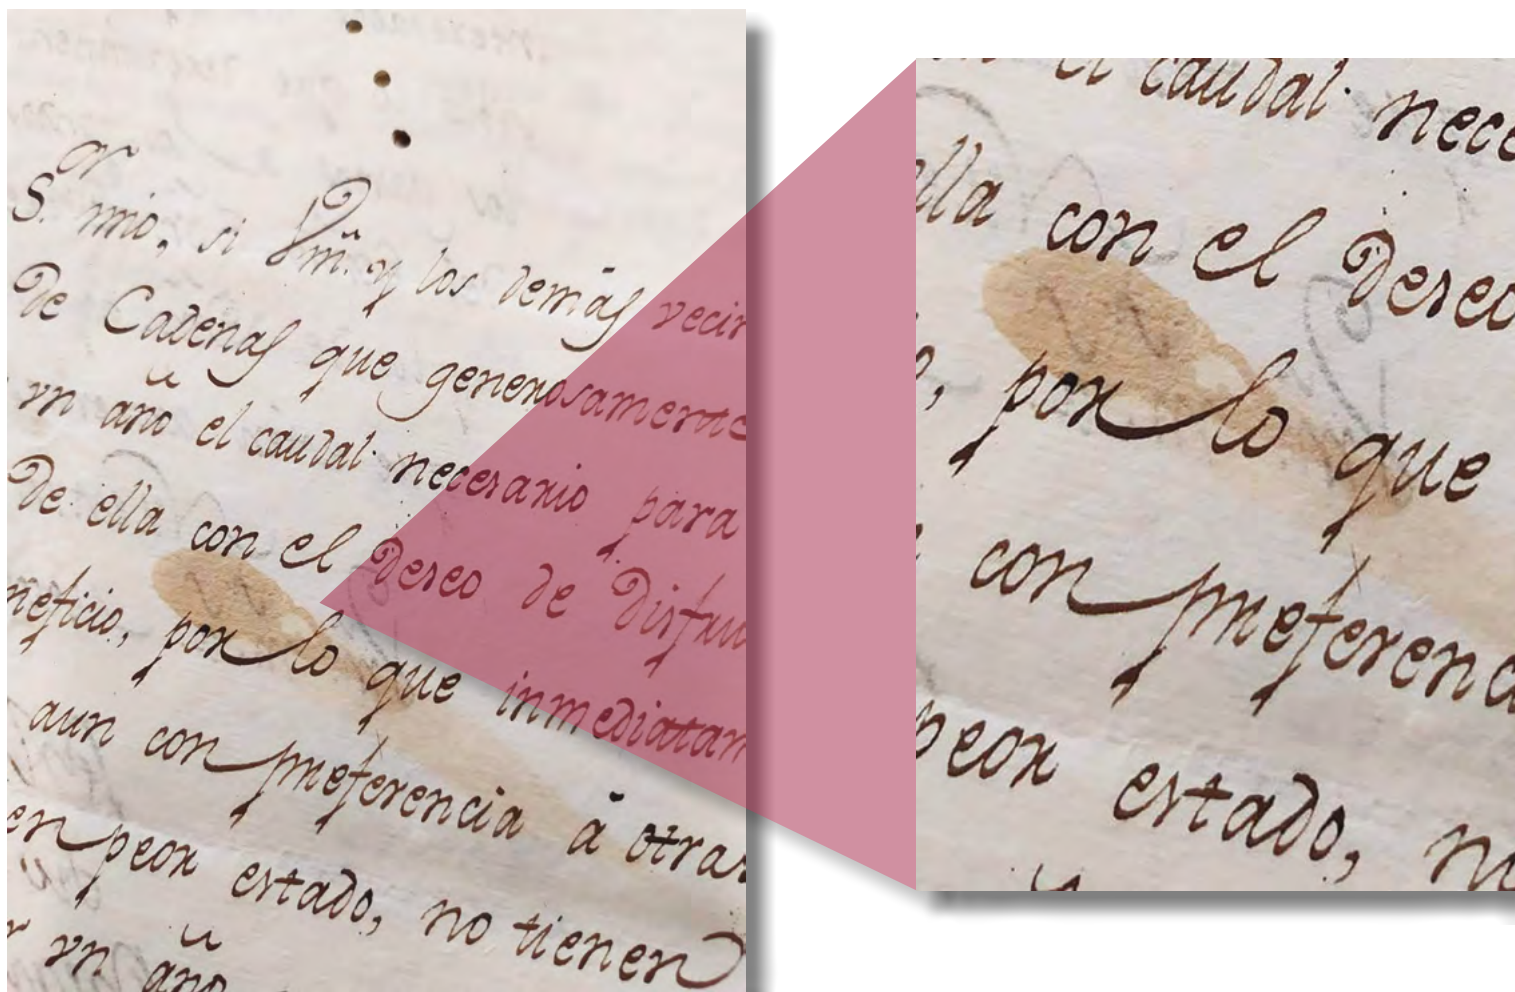 S.or mio, si Vm. y los demas vecin
de Cadenas que generosamente
vn año el caudal necesario para
de ella con el deseo de disfru
neficio, por lo que inmediatam
aun con preferencia á otras
en peor estado, no tienen
r vn año
el caudal nece
ella con el deseo
o, por lo que
con preferenci
peor estado, n